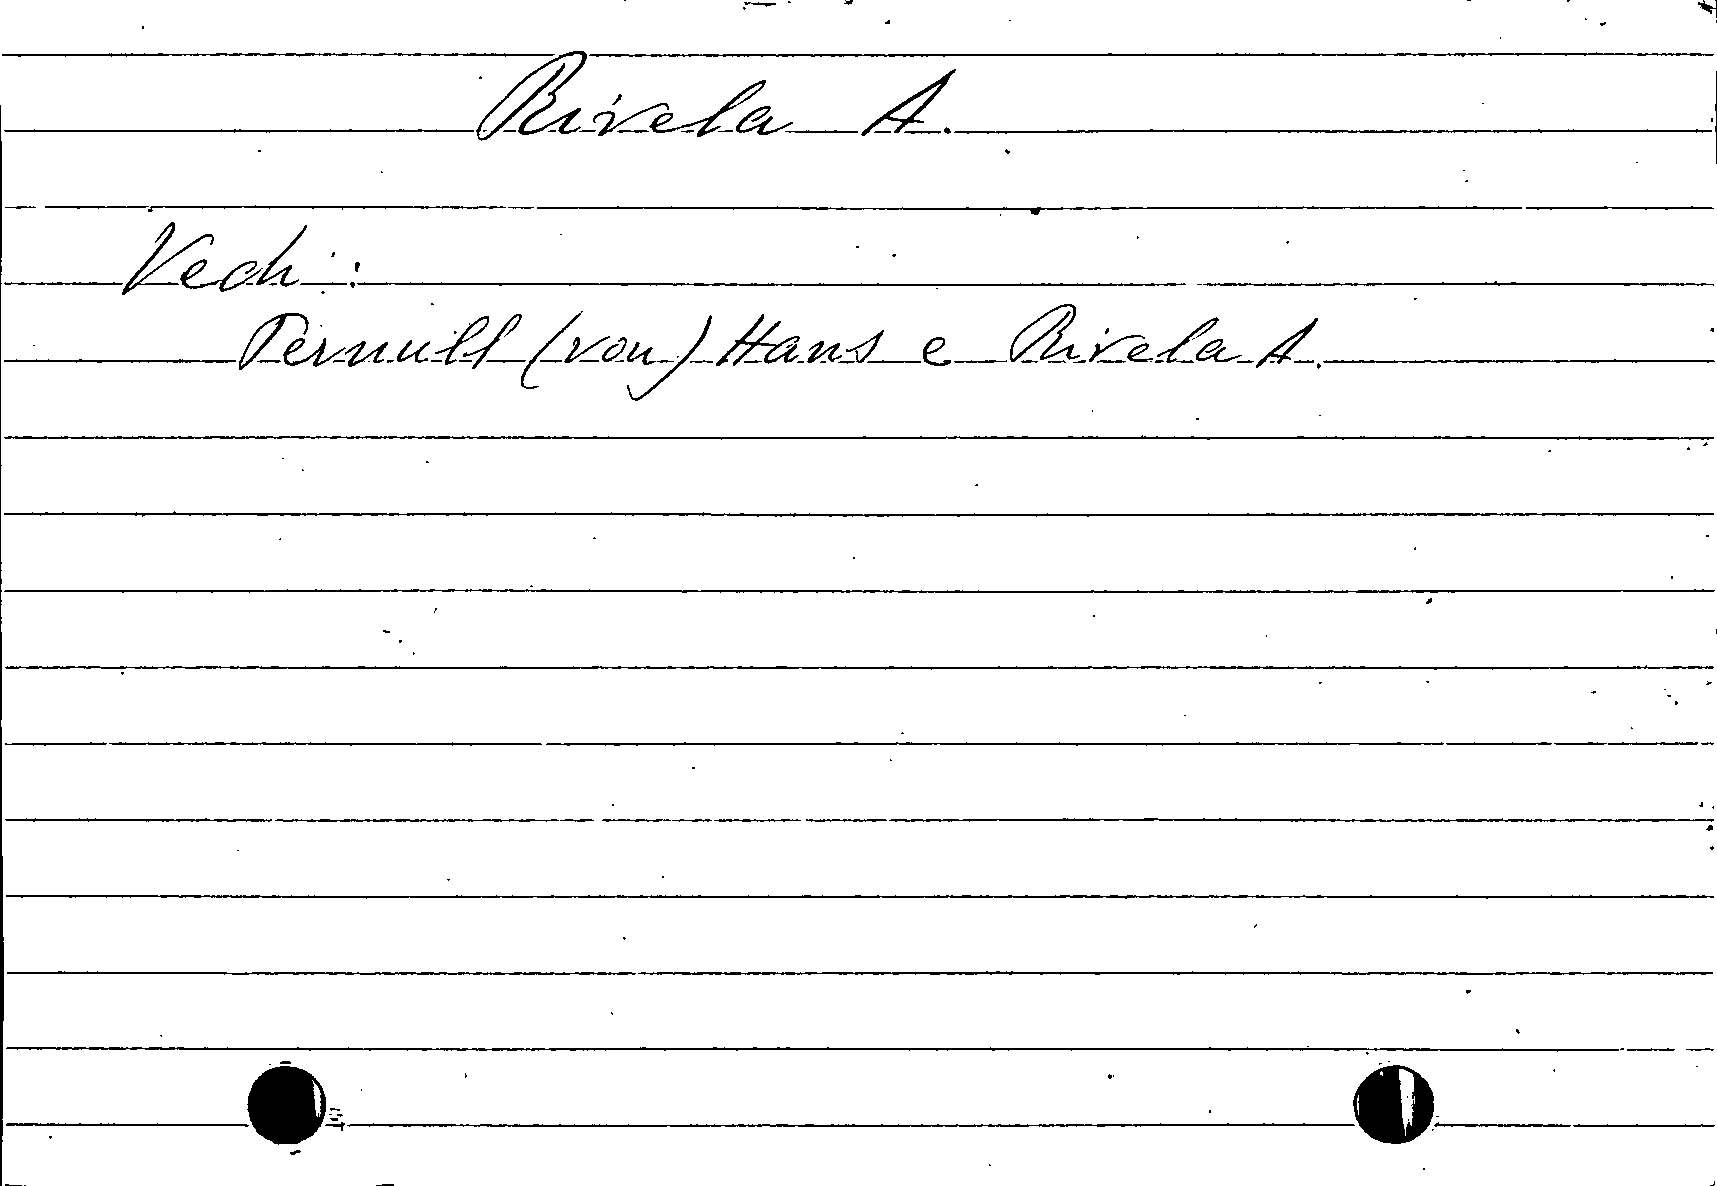 Rivela A.
Vedi:
Pernull (von) Hans e Rivela A.